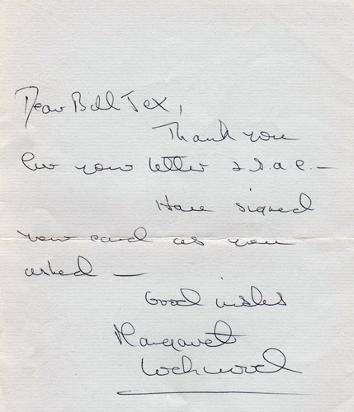 Dear Bill Tex,
Thank you
for your letter & s.a.e. —
Have signed
your card as you
asked —
Good wishes
Margaret
Lockwood